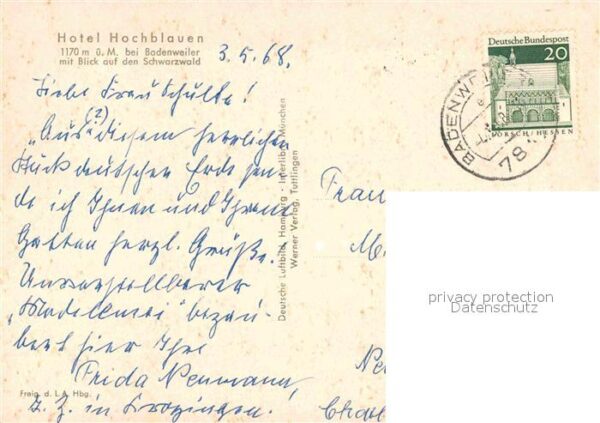 Hotel Hochblauen
1170 m ü. M. bei Badenweiler
mit Blick auf den Schwarzwald
3.5.68.
Liebe Frau Schulte!
"Aus (?) diesem herrlichen
Stück deutscher Erde sen-
de ich Ihnen und Ihrem
Gatten herzl. Grüße.
Unvorstellbarer
"Modellmei" bezau-
bert hier Ihre
Frida Neumann,
z. Z. in Krozingen.
Freig. d. L.A. Hbg.
Deutsche Luftbild, Hamburg · Interlibra München
Werner Verlag, Tuttlingen
Deutsche Bundespost
20
LORSCH/HESSEN
BADENWEILER
78
Frau
M.
privacy protection
Datenschutz